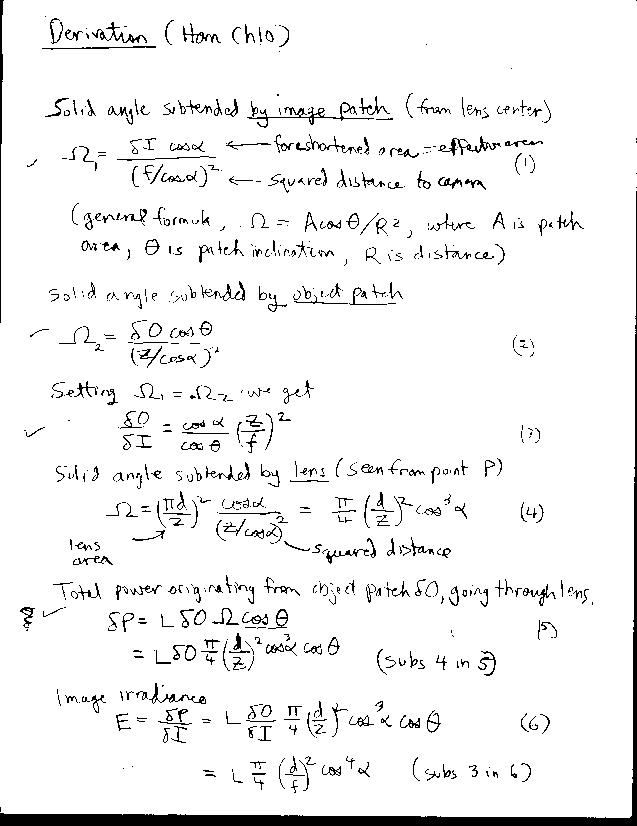 Derivation (Horn Ch10)
Solid angle subtended by image patch (from lens center)
Ω₁ = δI cosα / (f/cosα)² ← foreshortened area = effective area (1)
← squared distance to camera
(general formula, Ω = A cosθ/R², where A is patch
area, θ is patch inclination, R is distance)
Solid angle subtended by object patch
✓ Ω₂ = δO cosθ / (Z/cosα)² (2)
Setting Ω₁ = Ω₂ we get
✓ δO/δI = cosα/cosθ (Z/f)² (3)
Solid angle subtended by lens (seen from point P)
Ω = (πd/2)² cosα/(Z/cosα)² = π/4 (d/Z)² cos³α (4)
lens area
squared distance
Total power originating from object patch δO, going through lens,
✓ δP = L δO Ω cosθ (5)
= L δO π/4 (d/Z)² cos³α cosθ (subs 4 in 5)
Image irradiance
E = δP/δI = L δO/δI π/4 (d/Z)² cos³α cosθ (6)
= L π/4 (d/f)² cos⁴α (subs 3 in 6)